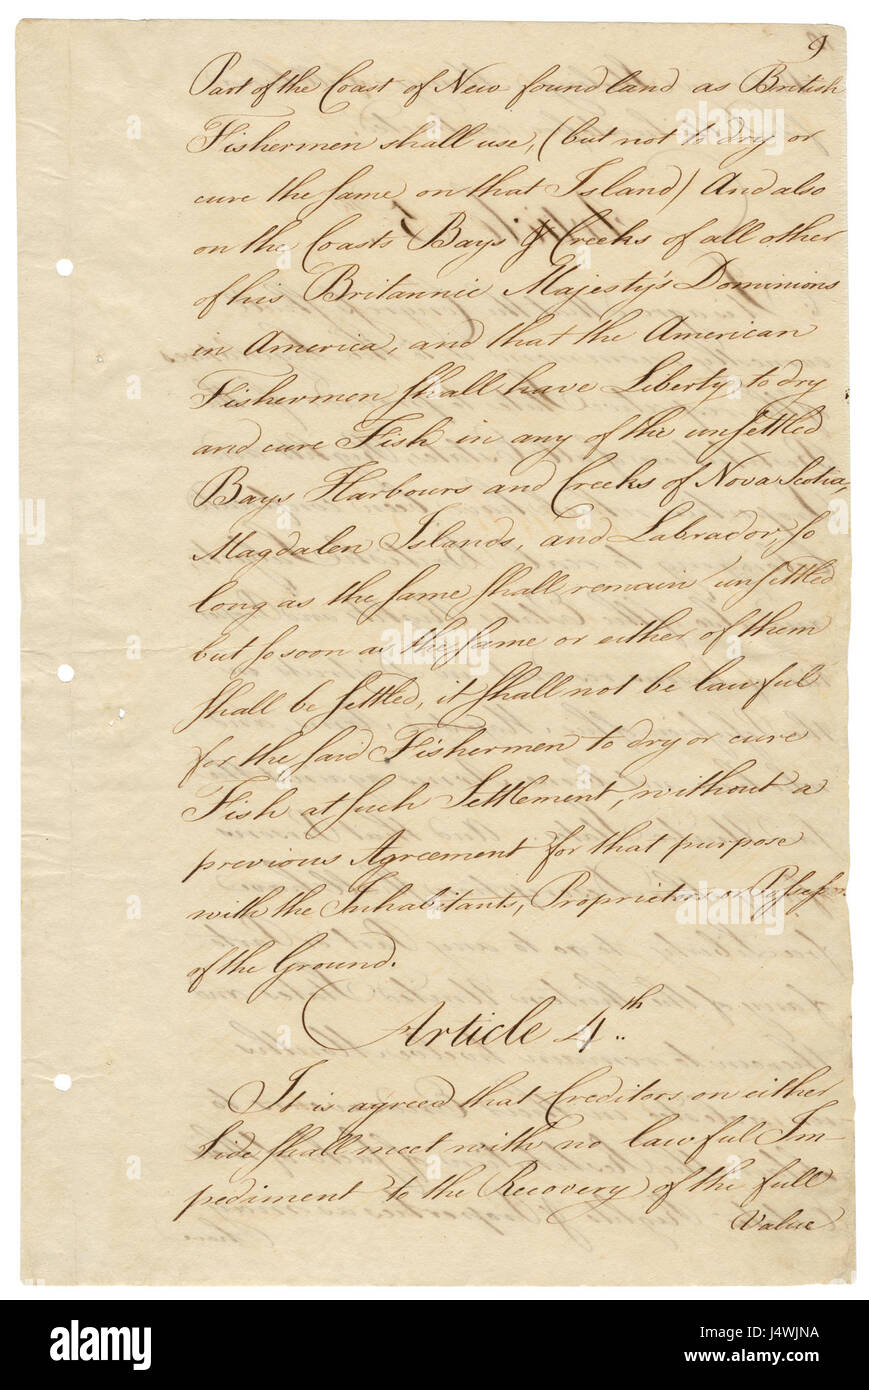 9
Part of the Coast of New found land as British
Fishermen shall use, (but not to dry or
cure the same on that Island) And also
on the Coasts Bays & Creeks of all other
of his Britannic Majesty's Dominions
in America, and that the American
Fishermen shall have Liberty to dry
and cure Fish in any of the unsettled
Bays Harbours and Creeks of Nova Scotia,
Magdalen Islands, and Labrador, so
long as the same shall remain unsettled
but so soon as the same or either of them
shall be settled, it shall not be lawful
for the said Fishermen to dry or cure
Fish at such Settlement, without a
previous Agreement for that purpose
with the Inhabitants, Proprietors or Possessors
of the Ground.
Article 4th..
It is agreed that Creditors on either
Side shall meet with no lawful Im-
pediment to the Recovery of the full
Value
alamy
Image ID: J4WJNA
www.alamy.com